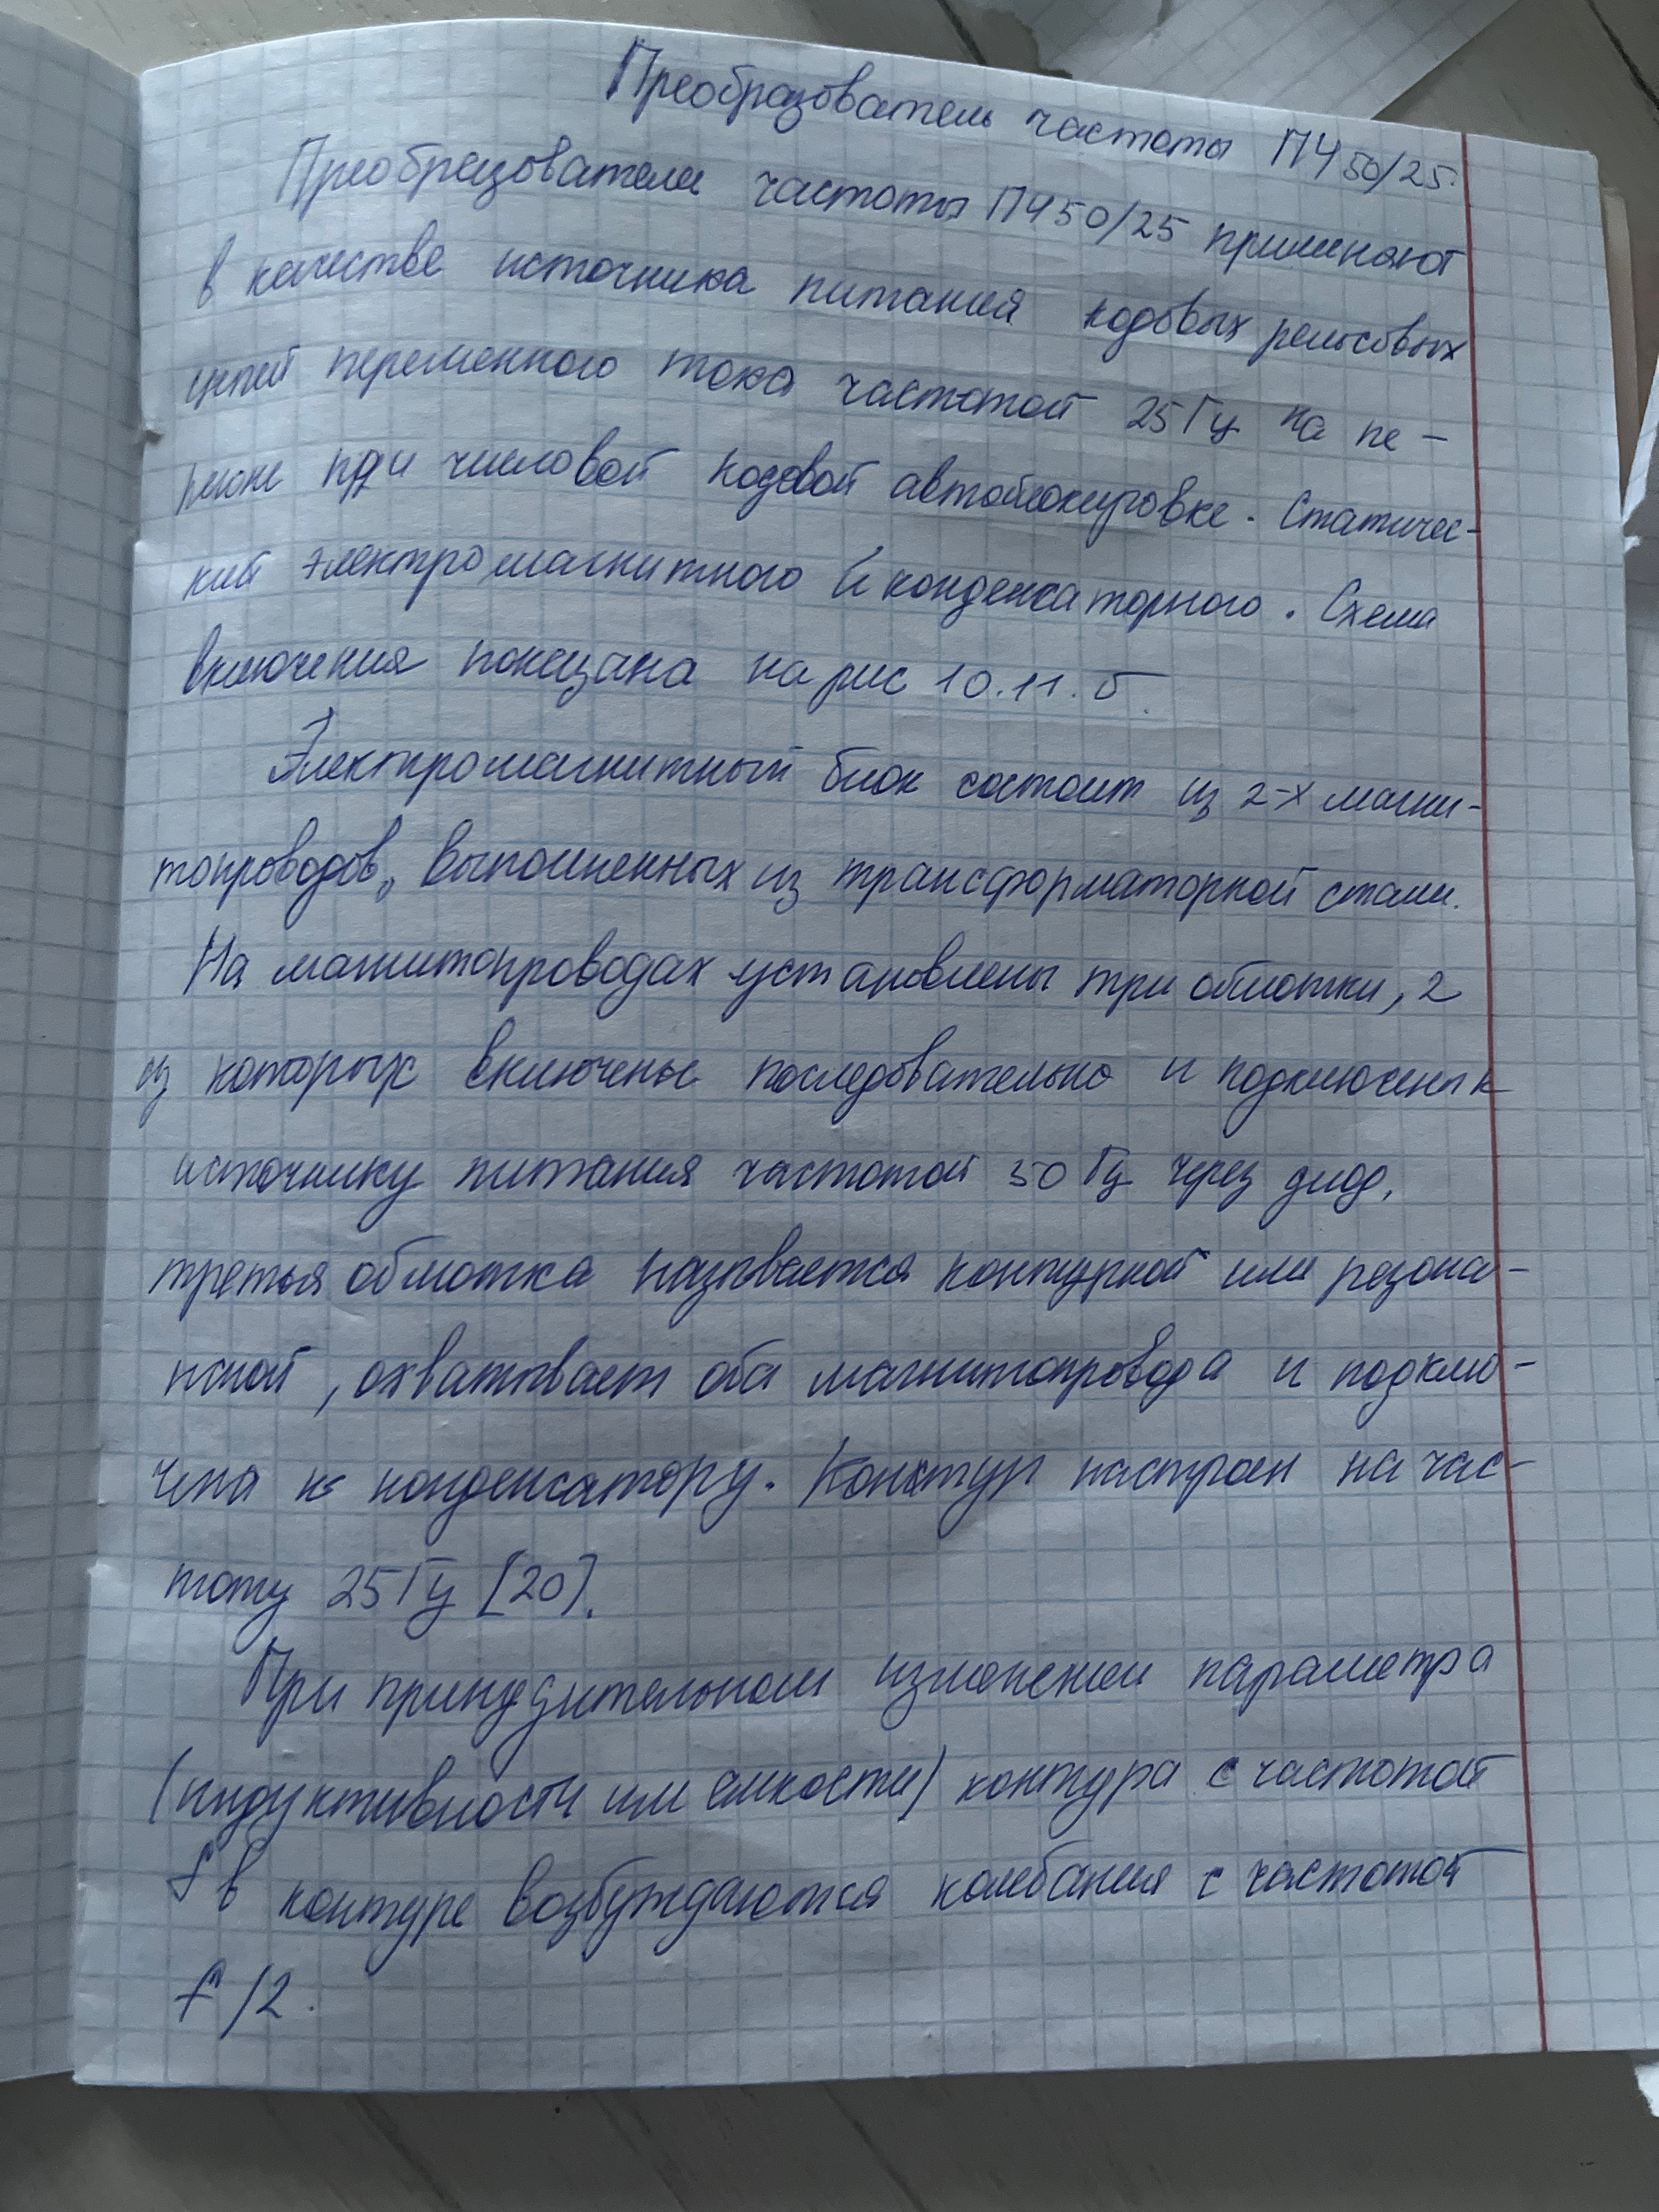 Преобразователь частоты ПЧ 50/25.
Преобразователи частоты ПЧ50/25 применяют
в качестве источника питания кодовых рельсовых
цепей переменного тока частотой 25 Гц на пе-
регоне при числовой кодовой автоблокировке. Статичес-
кий электромагнитного и конденсаторного. Схема
включения показана на рис 10.11. б.
Электромагнитный блок состоит из 2-х магни-
топроводов, выполненных из трансформаторной стали.
На магнитопроводах установлены три обмотки, 2
из которых включены последовательно и подключены к
источнику питания частотой 50 Гц через диод,
третья обмотка называется контурной или резона-
нсной, охватывает оба магнитопровода и подклю-
чена к конденсатору. Контур настроен на час-
тоту 25 Гц [20].
При принудительном изменении параметра
(индуктивности или емкости) контура с частотой
f в контуре возбуждаются колебания с частотой
f/2.